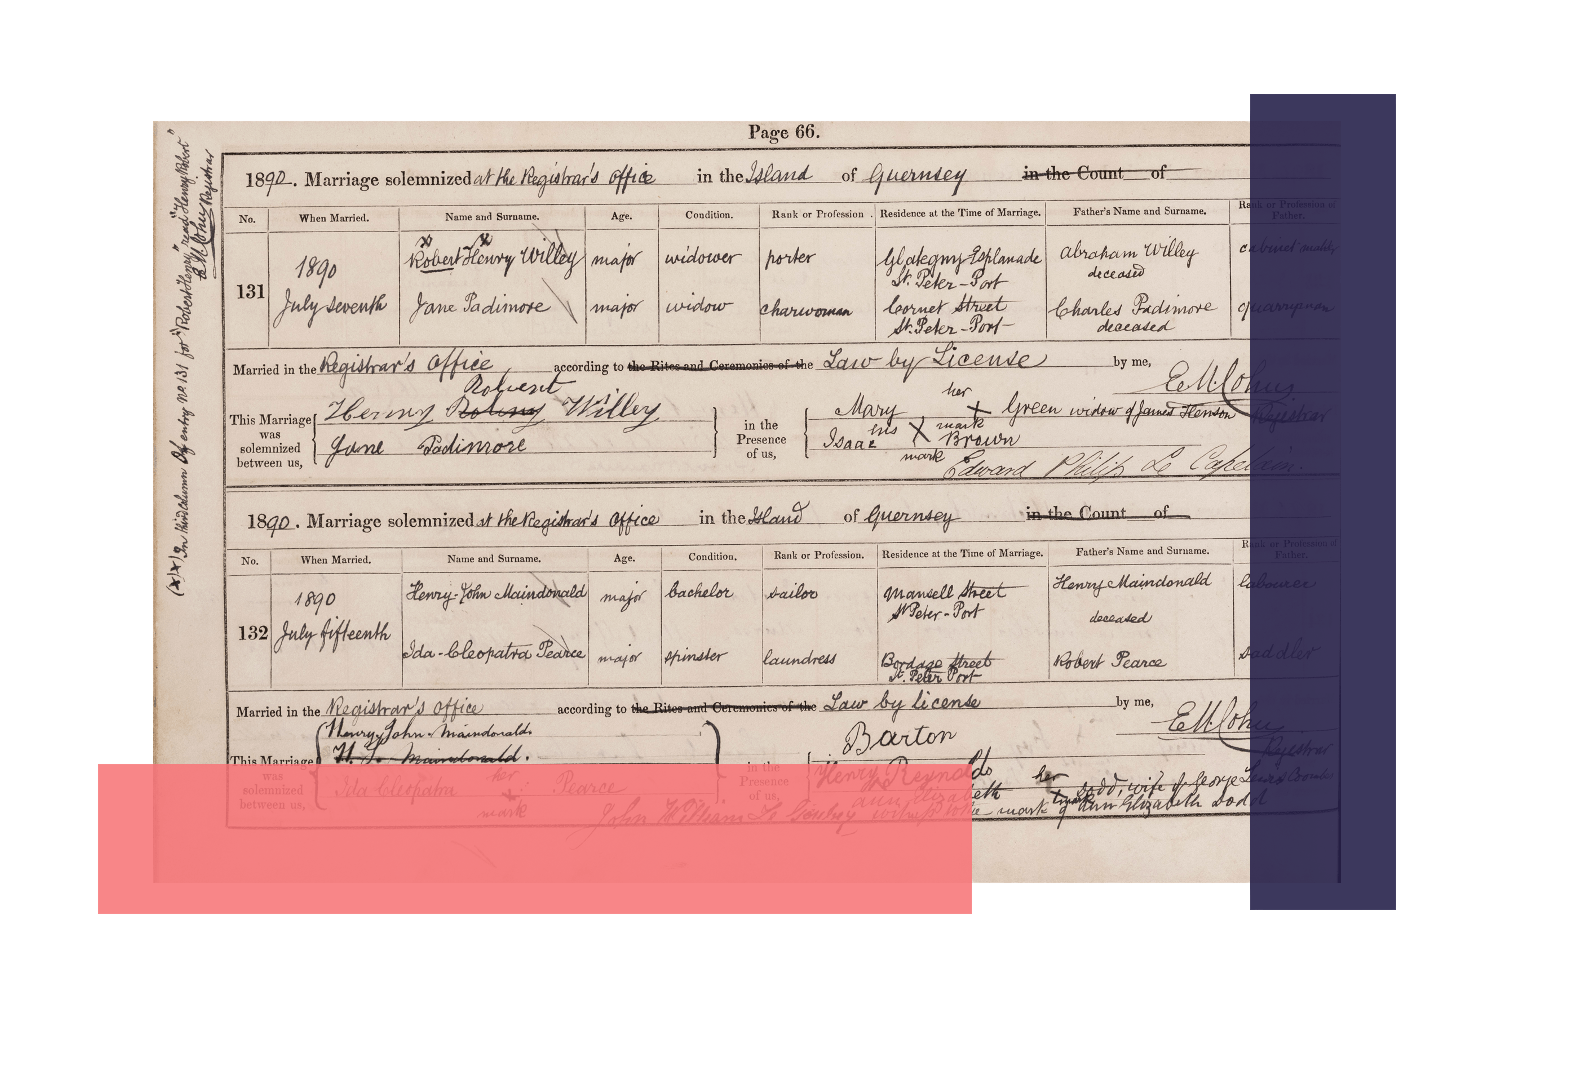 Page 66.
(x)(x) In third column of entry No. 131 for "Robert Henry" read "Henry Robert"
Registrar
1890. Marriage solemnized at the Registrar's Office in the Island of Guernsey in the Count of
No. When Married. Name and Surname. Age. Condition. Rank or Profession. Residence at the Time of Marriage. Father's Name and Surname. Rank or Profession of Father.
131 1890 Robert Henry Willey major widower porter Glategny Esplanade Abraham Willey cabinet maker
St. Peter-Port deceased
July seventh Jane Padimore major widow charwoman Cornet Street Charles Padimore quarryman
St. Peter-Port deceased
Married in the Registrar's Office according to the Rites and Ceremonies of the Law by License by me,
Robert
Henry Willey
This Marriage was solemnized between us, Jane Padimore
in the Presence of us, Mary her x mark Green widow of James Henson Registrar
Isaac his x mark Brown
Edward Philip Le Capelain.
1890. Marriage solemnized at the Registrar's Office in the Island of Guernsey in the Count of
No. When Married. Name and Surname. Age. Condition. Rank or Profession. Residence at the Time of Marriage. Father's Name and Surname. Rank or Profession of Father.
132 1890 Henry-John Maindonald major bachelor sailor Mansell Street Henry Maindonald labourer
St Peter-Port deceased
July fifteenth Ida-Cleopatra Pearce major spinster laundress Bordage Street Robert Pearce saddler
St. Peter Port
Married in the Registrar's Office according to the Rites and Ceremonies of the Law by license by me,
Henry John Maindonald
H. J. Maindonald.
This Marriage was solemnized between us, Ida Cleopatra her x mark Pearce
in the Presence of us, Barton
Henry Reynolds Registrar
Ann Elizabeth her x mark Dodd, wife of George
John William Le witness to the mark of Ann Elizabeth Dodd